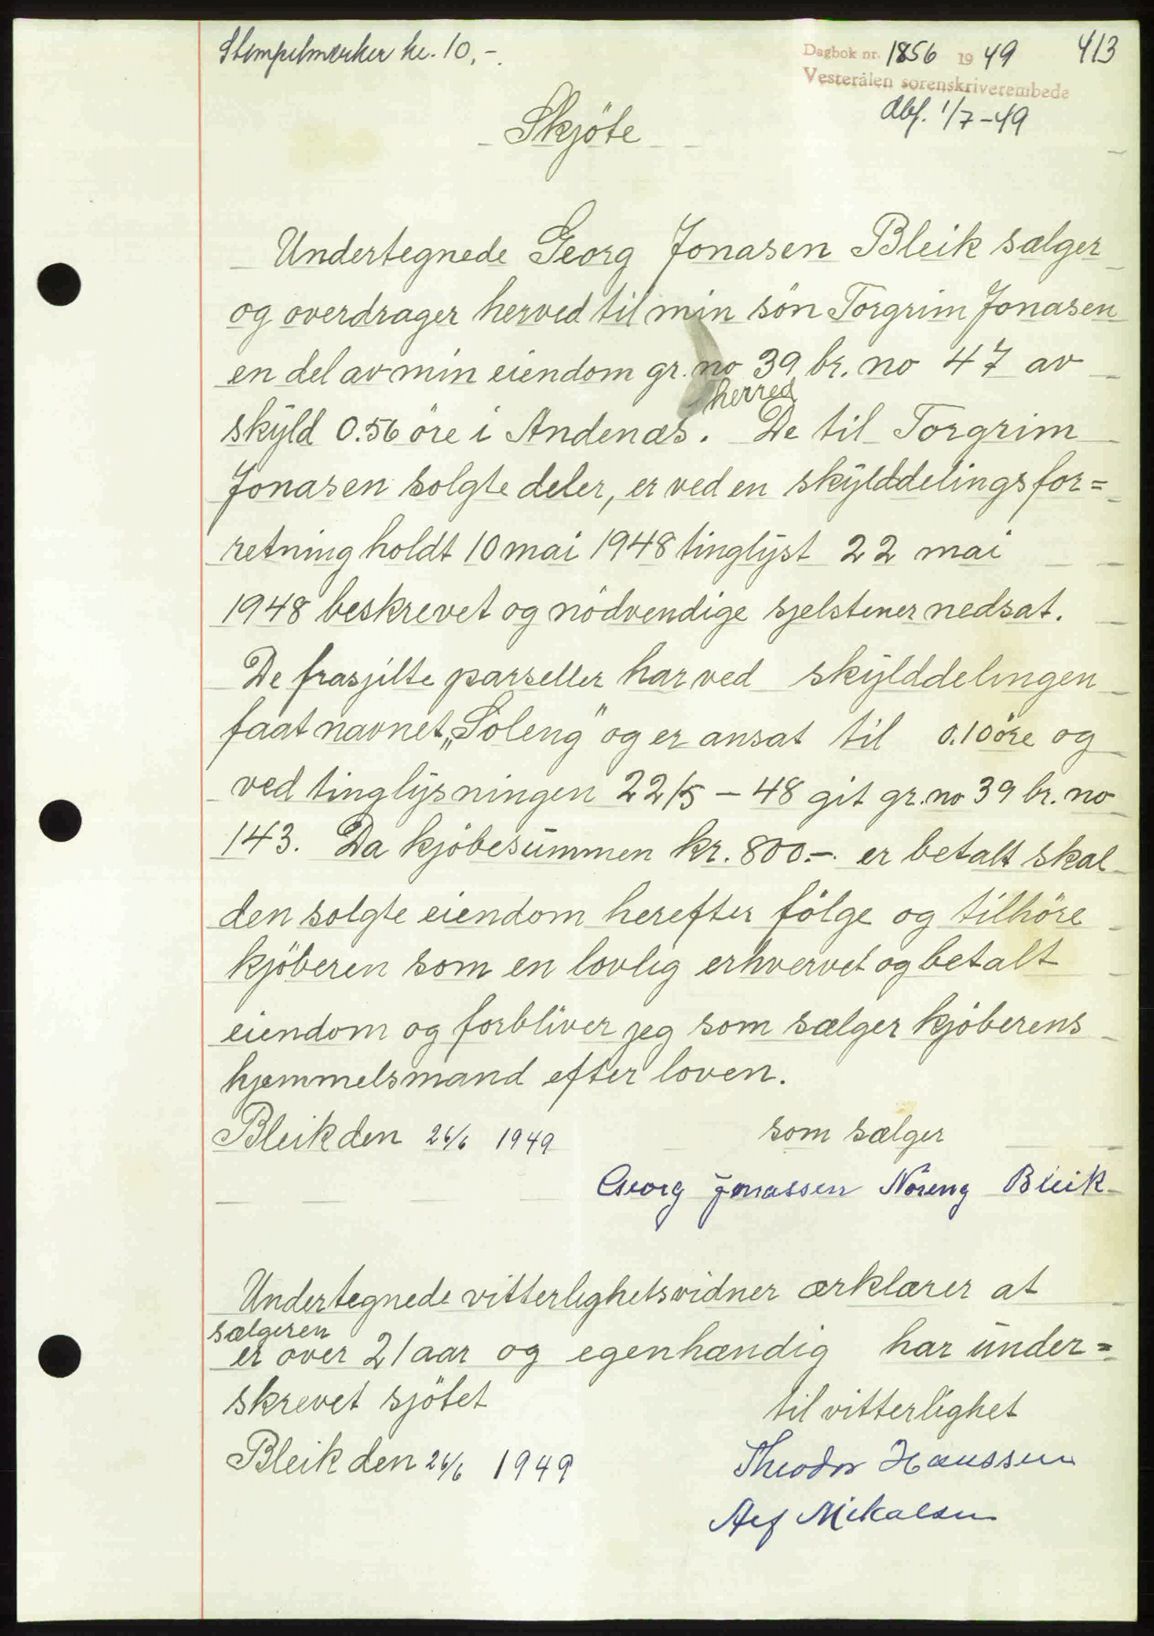 Stempelmerker kr. 10,-.
Dagbok nr. 1856 1949 413
Vesterålen sorenskriverembede
dbf. 1/7-49
Skjöte
Undertegnede Georg Jonasen Bleik sælger
og overdrager herved til min sön Torgrim Jonasen
en del av min eiendom gr. no 39 br. no 47 av
herred
skyld 0.56 öre i Andenæs. De til Torgrim
Jonasen solgte deler, er ved en skylddelingsfor=
retning holdt 10 mai 1948 tinglyst 22 mai
1948 beskrevet og nödvendige sjelstener nedsat.
De frasjilte parseller har ved skylddelingen
faat navnet „Soleng" og er ansat til 0.10 öre og
ved tinglysningen 22/5 - 48 git gr. no 39 br. no
143. Da kjöbesummen kr. 800.- er betalt skal
den solgte eiendom herefter fölge og tilhöre
kjöberen som en lovlig erhvervet og betalt
eiendom og forbliver jeg som sælger kjöberens
hjemmelsmand efter loven.
Bleik den 26/6 1949 som sælger
Georg Jonassen Noreng Bleik
Undertegnede vitterlighetsvidner ærklærer at
sælgeren
er over 21 aar og egenhændig har under=
skrevet sjötet
til vitterlighet
Bleik den 26/6 1949 Theodor Hanssen
Mikalsen